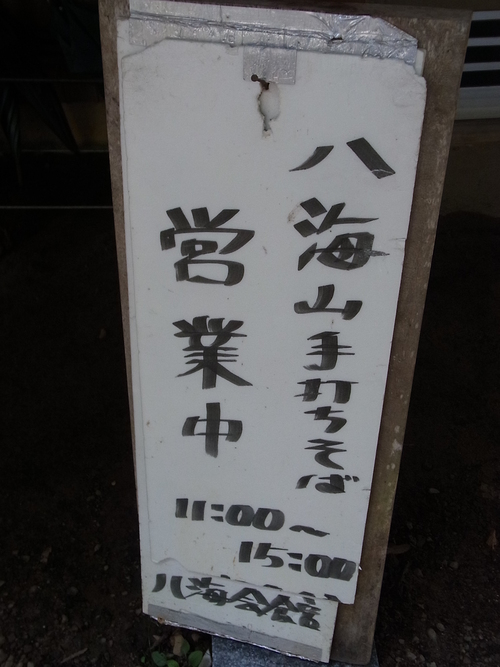 八海山手打ちそば
営業中
11:00～
15:00
八海会館